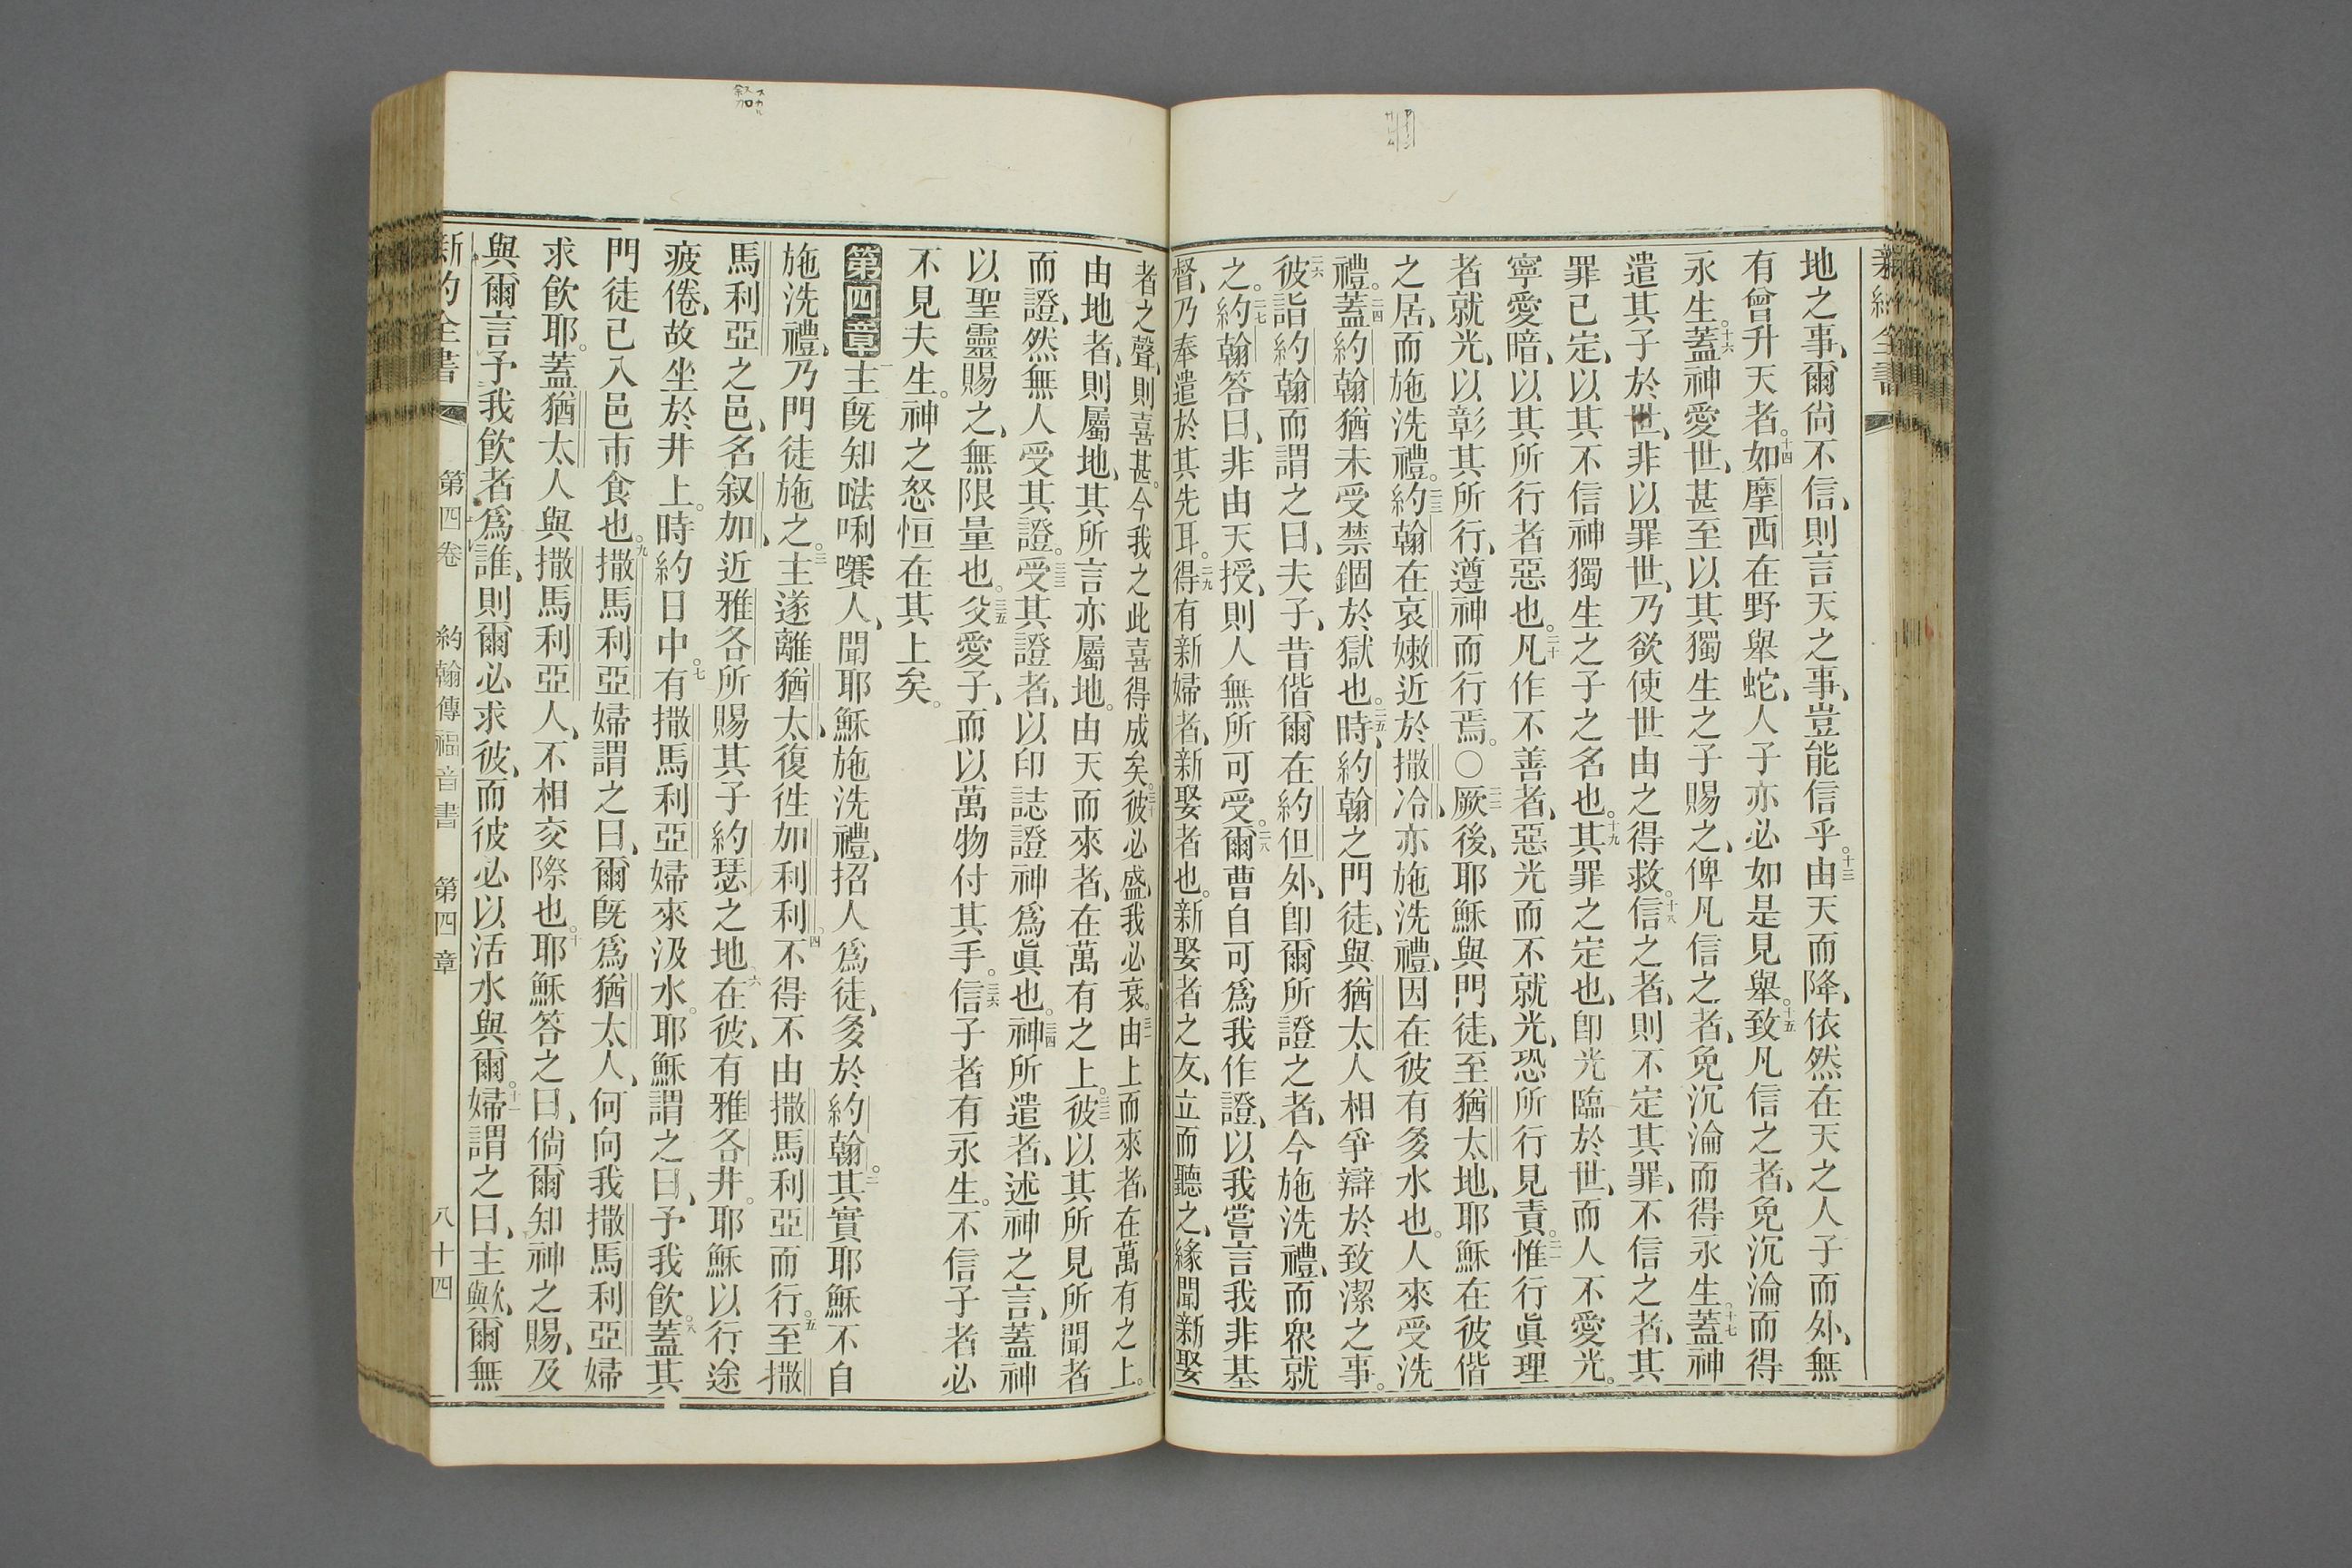 新約全書
地之事、爾尙不信、則言天之事、豈能信乎。十三由天而降、依然在天之人子而外、無
有曾升天者。十四如摩西在野舉蛇、人子亦必如是見舉。十五致凡信之者、免沉淪而得
永生。十六蓋神愛世、甚至以其獨生之子賜之、俾凡信之者、免沉淪而得永生。十七蓋神
遣其子於世、非以罪世、乃欲使世由之得救。十八信之者、則不定其罪、不信之者、其
罪已定、以其不信神獨生之子之名也。十九其罪之定也、卽光臨於世、而人不愛光。
寧愛暗、以其所行者惡也。二十凡作不善者、惡光而不就光、恐所行見責。二一惟行眞理
者就光、以彰其所行、遵神而行焉。○二二厥後、耶穌與門徒、至猶太地、耶穌在彼偕
之居、而施洗禮。二三約翰在哀嫩近於撒冷、亦施洗禮、因在彼有多水也。人來受洗
禮。二四蓋約翰猶未受禁錮於獄也。二五時、約翰之門徒、與猶太人相爭辯於致潔之事。
二六彼詣約翰而謂之曰、夫子、昔偕爾在約但外、卽爾所證之者、今施洗禮、而衆就
之。二七約翰答曰、非由天授、則人無所可受。二八爾曹自可爲我作證、以我嘗言我非基
督、乃奉遣於其先耳。二九得有新婦者、新娶者也。新娶者之友、立而聽之、緣聞新娶
者之聲、則喜甚。今我之此喜得成矣。三十彼必盛、我必衰。三一由上而來者、在萬有之上。
由地者、則屬地、其所言亦屬地。由天而來者、在萬有之上。三二彼以其所見所聞者
而證、然無人受其證。三三受其證者、以印誌證神爲眞也。三四神所遣者、述神之言、蓋神
以聖靈賜之、無限量也。三五父愛子、而以萬物付其手。三六信子者有永生。不信子者必
不見夫生。神之怒恒在其上矣。
第四章 一主旣知𠵽唎㘔人、聞耶穌施洗禮、招人爲徒、多於約翰。二其實耶穌不自
施洗禮、乃門徒施之。三主遂離猶太、復徃加利利。四不得不由撒馬利亞而行。五至撒
馬利亞之邑、名叙加、近雅各所賜其子約瑟之地。六在彼、有雅各井。耶穌以行途
疲倦、故坐於井上。時約日中。七有撒馬利亞婦來汲水。耶穌謂之曰、予我飮。八蓋其
門徒已入邑市食也。九撒馬利亞婦謂之曰、爾旣爲猶太人、何向我撒馬利亞婦
求飮耶。蓋猶太人與撒馬利亞人、不相交際也。十耶穌答之曰、倘爾知神之賜、及
與爾言予我飮者爲誰、則爾必求彼、而彼必以活水與爾。十一婦謂之曰、主歟、爾無
新約全書 第四卷 約翰傳福音書 第四章 八十四
叙加 スカル